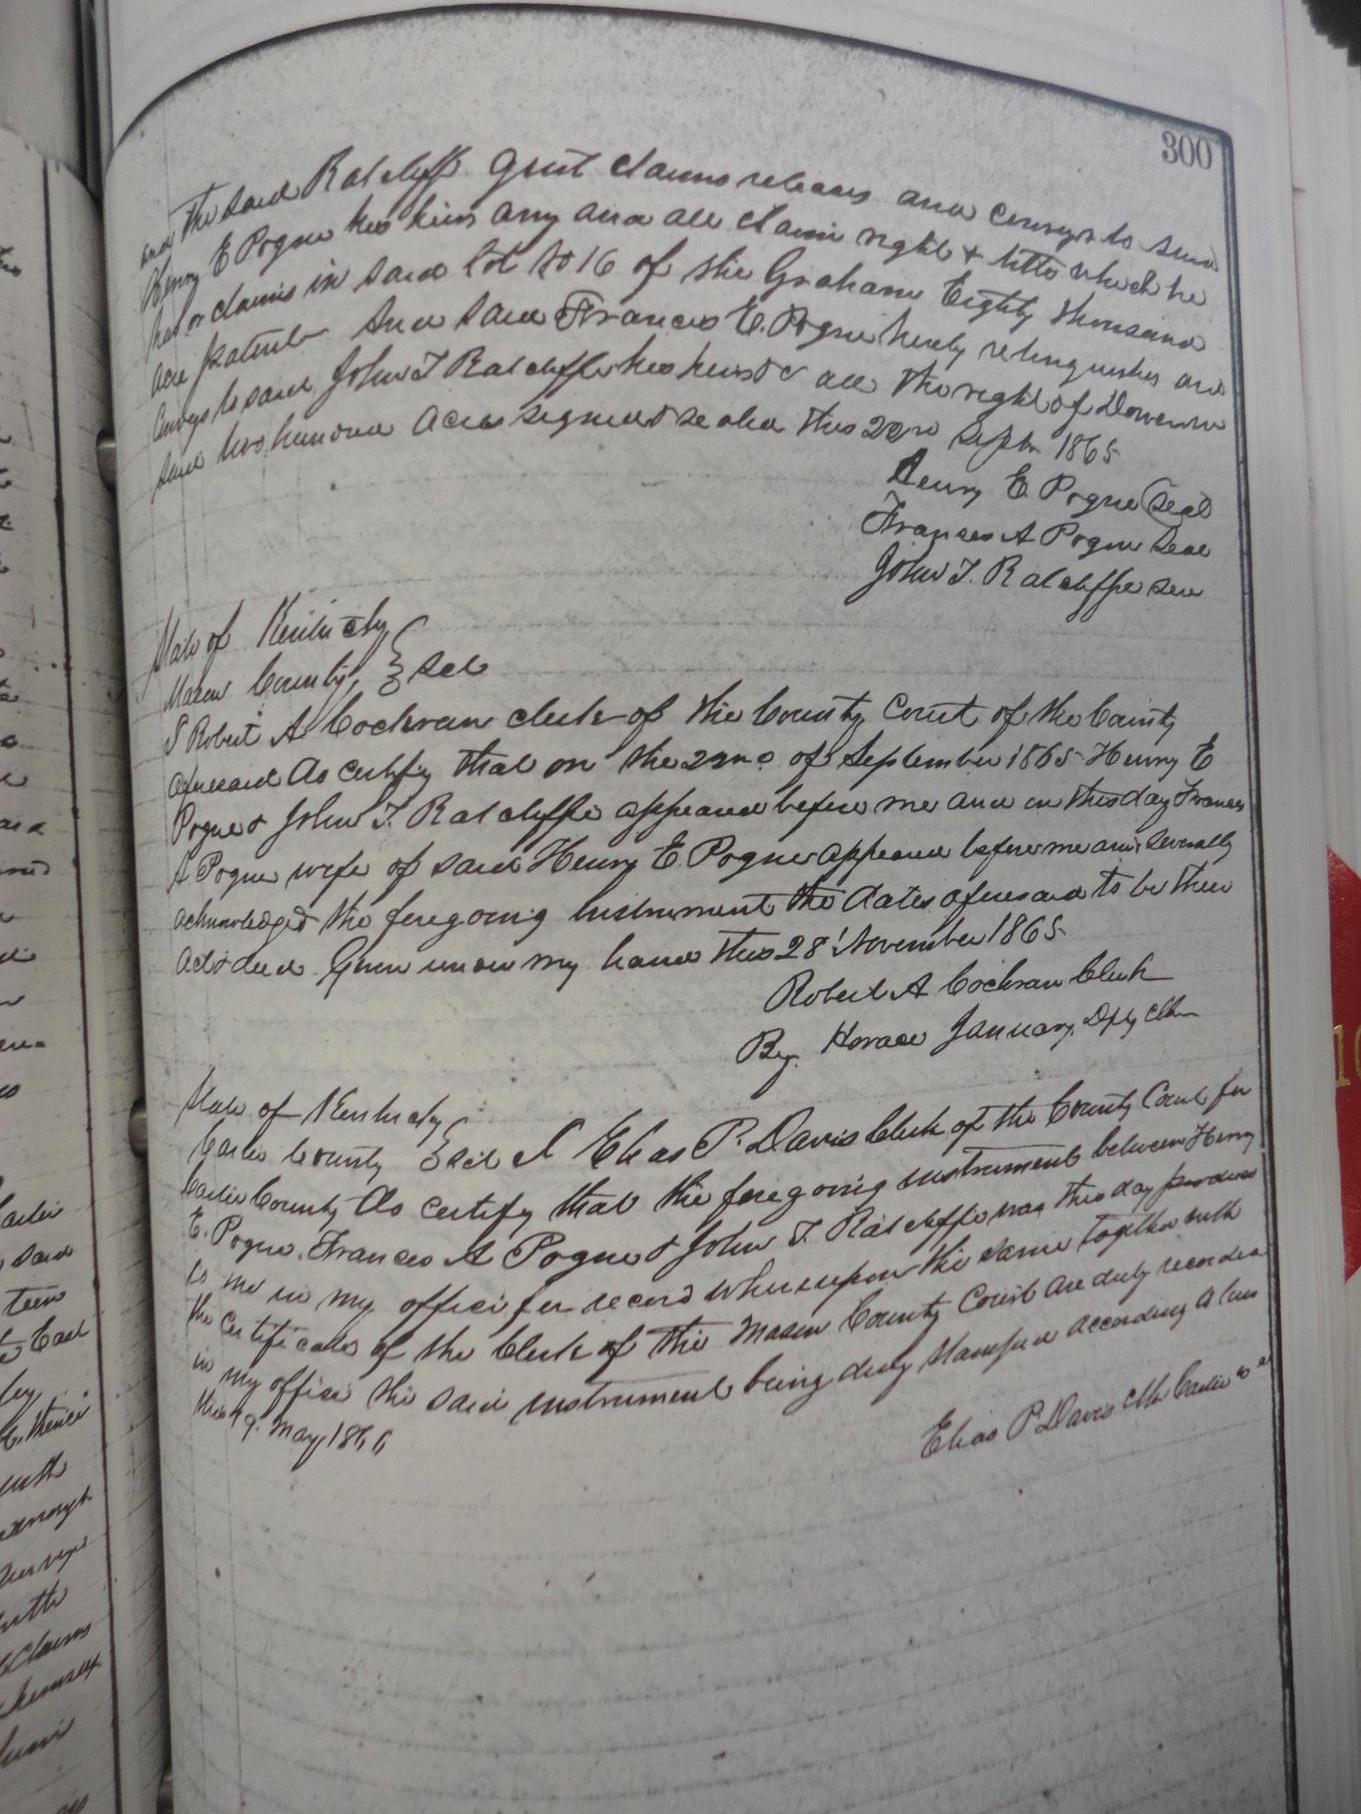 300
and the said Ratcliffe Quit claims releases and conveys to said
Henry E Pogue his heirs any and all claim right & title which he
has or claims in said lot No 16 of the Graham Eighty thousand
acre patent And said Frances E. Pogue hereby relinquishes and
Conveys to said John T Ratcliffe his heirs &c all the right of Dower in
said two hundred acres signed & sealed this 22nd Septr 1865
Henry E. Pogue Seal
Frances A Pogue Seal
John T. Ratcliffe Seal
State of Kentucky
Mason County, } Sct
I Robert A. Cochran clerk of the County Court of the County
aforesaid do certify that on the 22nd of September 1865 Henry E
Pogue & John T. Ratcliffe appeared before me and on this day Frances
A Pogue wife of said Henry E. Pogue appeared before me and severally
acknowledged the foregoing instrument the dates aforesaid to be their
act & deed Given under my hand this 28' November 1865
Robert A Cochran Clerk
By Horace January, Dpty Clk
State of Kentucky
Carter County } Sct I Elias P. Davis Clerk of the County Court for
Carter County do certify that the foregoing instrument between Henry
E. Pogue, Frances A Pogue & John T. Ratcliffe was this day produced
to me in my office for record whereupon the same together with
the certificates of the Clerk of the Mason County Court are duly recorded
in my office the said instrument being duly stamped according to law
this 19. May 1866
Elias P. Davis Clk Carter Co